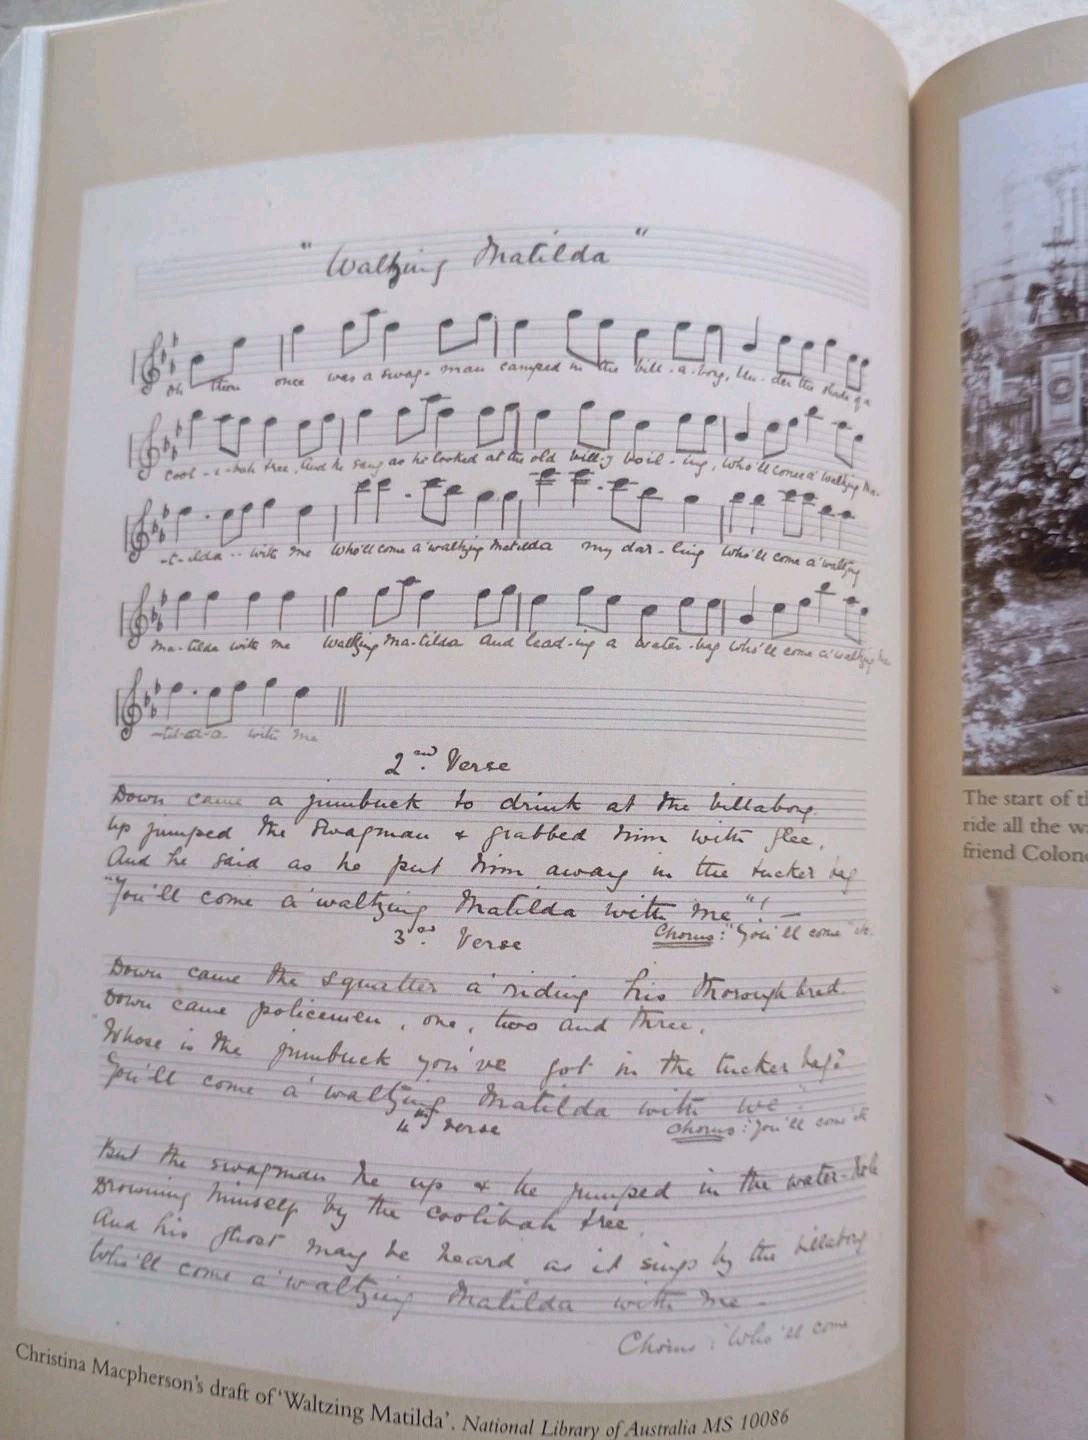 "Waltzing Matilda"
Oh there once was a swag-man camped in the bill-a-bong, Un-der the shade of a
cool-i-bah tree, And he sang as he looked at the old bill-y boil-ing, Who'll come a' waltzing Ma-
-t-ilda -- with me Who'll come a' waltzing Matilda my dar-ling Who'll come a' waltzing
Ma-tilda with me Waltzing Ma-tilda And lead-ing a water-bag Who'll come a' waltzing Ma-
with me
2nd. Verse
Down came a jumbuck to drink at the billabong.
Up jumped the Swagman & grabbed him with glee,
And he said as he put him away in the tucker bag
"You'll come a' waltzing Matilda with me"! —
Chorus: "You'll come
3rd. Verse
Down came the Squatter a' riding his thoroughbred.
Down came policemen, one, two and three.
Whose is the jumbuck you've got in the tucker bag?
You'll come a' waltzing Matilda with we
Chorus: You'll come
4th verse
But the swagman he up & he jumped in the water-hole
Drowning himself by the coolibah tree,
And his ghost may be heard as it sings by the billabong
Who'll come a' waltzing Matilda with me.
Chorus: Who'll come
Christina Macpherson's draft of 'Waltzing Matilda'. National Library of Australia MS 10086
The start of
ride all the
friend